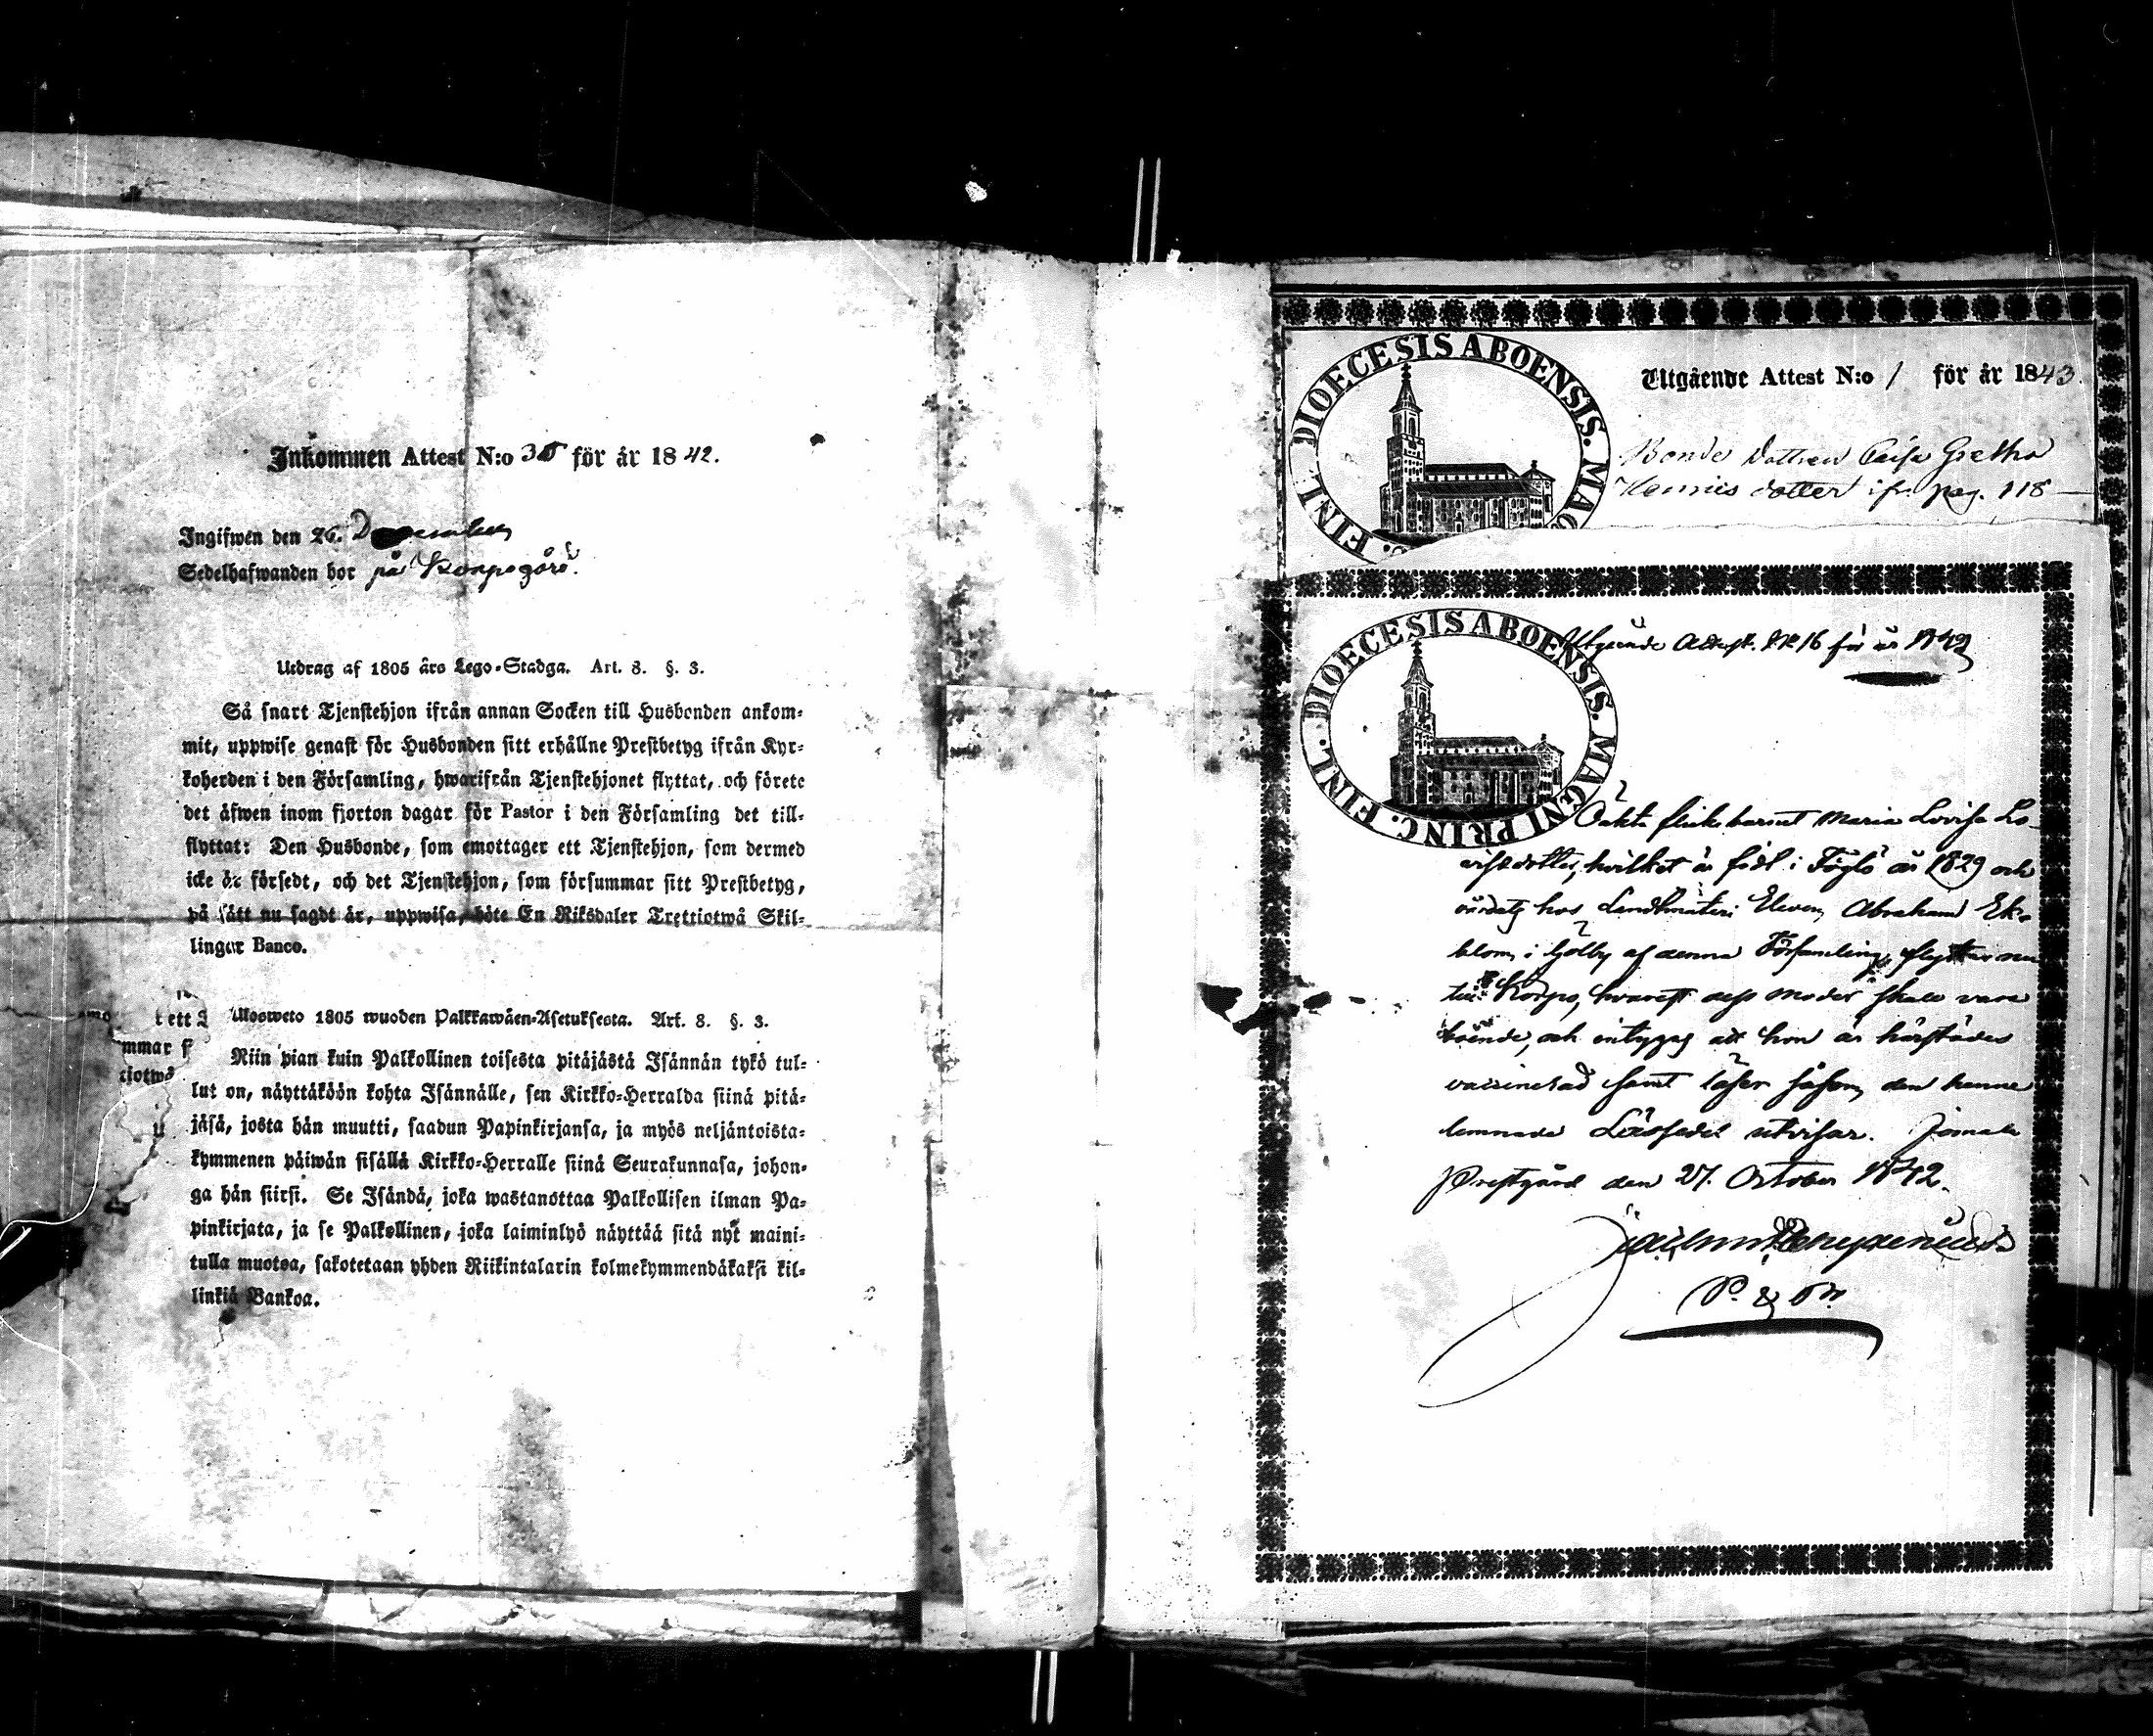 Inkommen Attest N:o 35 för år 1842.
Ingifwen den 26. December
Sedelhafwanden bor på Korpogård.
Utdrag af 1805 års Lego-Stadga. Art. 8. §. 3.
Så snart Tjenstehjon ifrån annan Socken till Husbonden ankom-
mit, uppwise genast för Husbonden sitt erhållne Prestbetyg ifrån Kyr-
koherden i den Församling, hwarifrån Tjenstehjonet flyttat, och förete
det äfwen inom fjorton dagar för Pastor i den Församling det till-
flyttat: Den Husbonde, som emottager ett Tjenstehjon, som dermed
icke är försedt, och det Tjenstehjon, som försummar sitt Prestbetyg,
på sätt nu sagdt är, uppwisa, böte En Riksdaler Trettiotwå Skil-
lingar Banco.
t ett
mmar f
Ulosweto 1805 wuoden Palkkawäen-Asetuksesta. Art. 8. §. 3.
Niin pian kuin Palkollinen toisesta pitäjästä Isännän tykö tul-
lut on, näyttäköön kohta Isännälle, sen Kirkko-Herralda siinä pitä-
jäsä, josta hän muutti, saadun Papinkirjansa, ja myös neljäntoista-
kymmenen päiwän sisällä Kirkko-Herralle siinä Seurakunnasa, johon-
ga hän siirsi. Se Isändä, joka wastanottaa Palkollisen ilman Pa-
pinkirjata, ja se Palkollinen, joka laiminlyö näyttää sitä nyt maini-
tulla muotoa, sakotetaan yhden Riikintalarin kolmekymmendäkaksi kil-
linkiä Bankoa.
DIOECESIS ABOENSIS. MAG FINL.
Utgående Attest N:o 1 för år 1843.
Bonde dottren Caisa Gretha
dotter ifr. pag. 118
DIOECESIS ABOENSIS. MAGNI PRINC. FINL.
Utgående Attest. N:o 16 för år 1842
Oäkta flickebarnet Maria Lovisa Lo-
visædotter, hvilket är födt i Föglö år 1829 och
vårdatz hos Landtmäteri Eleven Abraham Ek-
blom, i Gölby af denna Församling, flyttar nu
till Korpo, hvarest dess moder skall vara
boende, och intygas att hon är härstädes
vaccinerad samt läser såsom den henne
lemnade Läsesedel utvisar. Jomala
Prestgård den 27. October 1842.
P. & Pr.